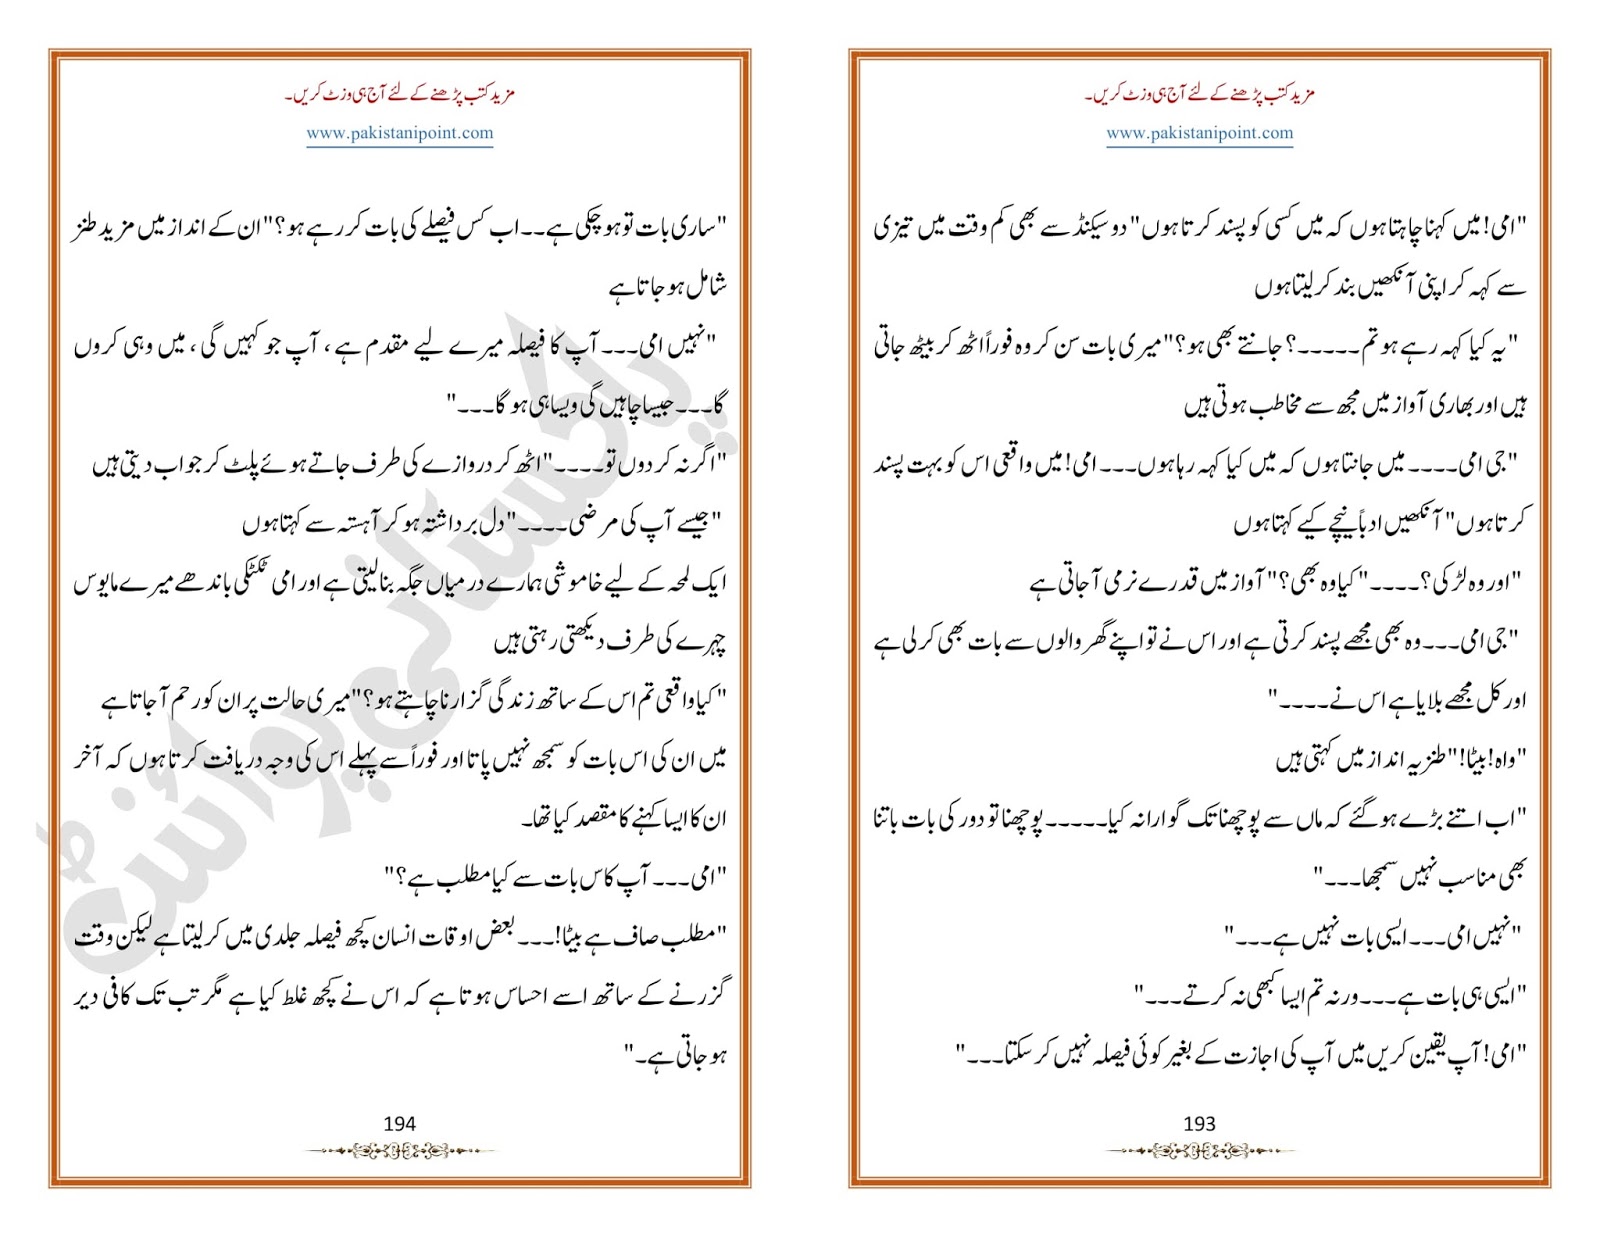 مزید کتب پڑھنے کے لئے آج ہی وزٹ کریں۔
www.pakistanipoint.com
"امی! میں کہنا چاہتا ہوں کہ میں کسی کو پسند کرتا ہوں" دو سیکنڈ سے بھی کم وقت میں تیزی
سے کہہ کر اپنی آنکھیں بند کر لیتا ہوں
"یہ کیا کہہ رہے ہو تم۔۔۔۔۔؟ جانتے بھی ہو؟" میری بات سن کر وہ فوراً اٹھ کر بیٹھ جاتی
ہیں اور بھاری آواز میں مجھ سے مخاطب ہوتی ہیں
"جی امی۔۔۔۔ میں جانتا ہوں کہ میں کیا کہہ رہا ہوں۔۔۔ امی! میں واقعی اس کو بہت پسند
کرتا ہوں" آنکھیں ادباً نیچے کیے کہتا ہوں
"اور وہ لڑکی؟۔۔۔۔" کیا وہ بھی؟" آواز میں قدرے نرمی آجاتی ہے
"جی امی۔۔۔ وہ بھی مجھے پسند کرتی ہے اور اس نے تو اپنے گھر والوں سے بات بھی کر لی ہے
اور کل مجھے بلایا ہے اس نے۔۔۔۔"
"واہ! بیٹا!" طنزیہ انداز میں کہتی ہیں
"اب اتنے بڑے ہو گئے کہ ماں سے پوچھنا تک گوارا نہ کیا۔۔۔۔۔ پوچھنا تو دور کی بات باتنا
بھی مناسب نہیں سمجھا۔۔۔"
"نہیں امی۔۔۔ ایسی بات نہیں ہے۔۔۔"
"ایسی ہی بات ہے۔۔۔ ورنہ تم ایسا کبھی نہ کرتے۔۔۔"
"امی! آپ یقین کریں میں آپ کی اجازت کے بغیر کوئی فیصلہ نہیں کر سکتا۔۔۔"
193
مزید کتب پڑھنے کے لئے آج ہی وزٹ کریں۔
www.pakistanipoint.com
"ساری بات تو ہو چکی ہے۔۔ اب کس فیصلے کی بات کر رہے ہو؟" ان کے انداز میں مزید طنز
شامل ہو جاتا ہے
"نہیں امی۔۔۔ آپ کا فیصلہ میرے لیے مقدم ہے، آپ جو کہیں گی، میں وہی کروں
گا۔۔۔ جیسا چاہیں گی ویسا ہی ہو گا۔۔۔"
"اگر نہ کر دوں تو۔۔۔۔" اٹھ کر دروازے کی طرف جاتے ہوئے پلٹ کر جواب دیتی ہیں
"جیسے آپ کی مرضی۔۔۔۔" دل برداشتہ ہو کر آہستہ سے کہتا ہوں
ایک لمحہ کے لیے خاموشی ہمارے درمیاں جگہ بنا لیتی ہے اور امی ٹکٹکی باندھے میرے مایوس
چہرے کی طرف دیکھتی رہتی ہیں
"کیا واقعی تم اس کے ساتھ زندگی گزارنا چاہتے ہو؟" میری حالت پر ان کو رحم آ جاتا ہے
میں ان کی اس بات کو سمجھ نہیں پاتا اور فوراً سے پہلے اس کی وجہ دریافت کرتا ہوں کہ آخر
ان کا ایسا کہنے کا مقصد کیا تھا۔
"امی۔۔۔ آپ کا س بات سے کیا مطلب ہے؟"
"مطلب صاف ہے بیٹا!۔۔۔ بعض اوقات انسان کچھ فیصلہ جلدی میں کر لیتا ہے لیکن وقت
گزرنے کے ساتھ اسے احساس ہوتا ہے کہ اس نے کچھ غلط کیا ہے مگر تب تک کافی دیر
ہو جاتی ہے۔"
194
پاکستانی پوائنٹ